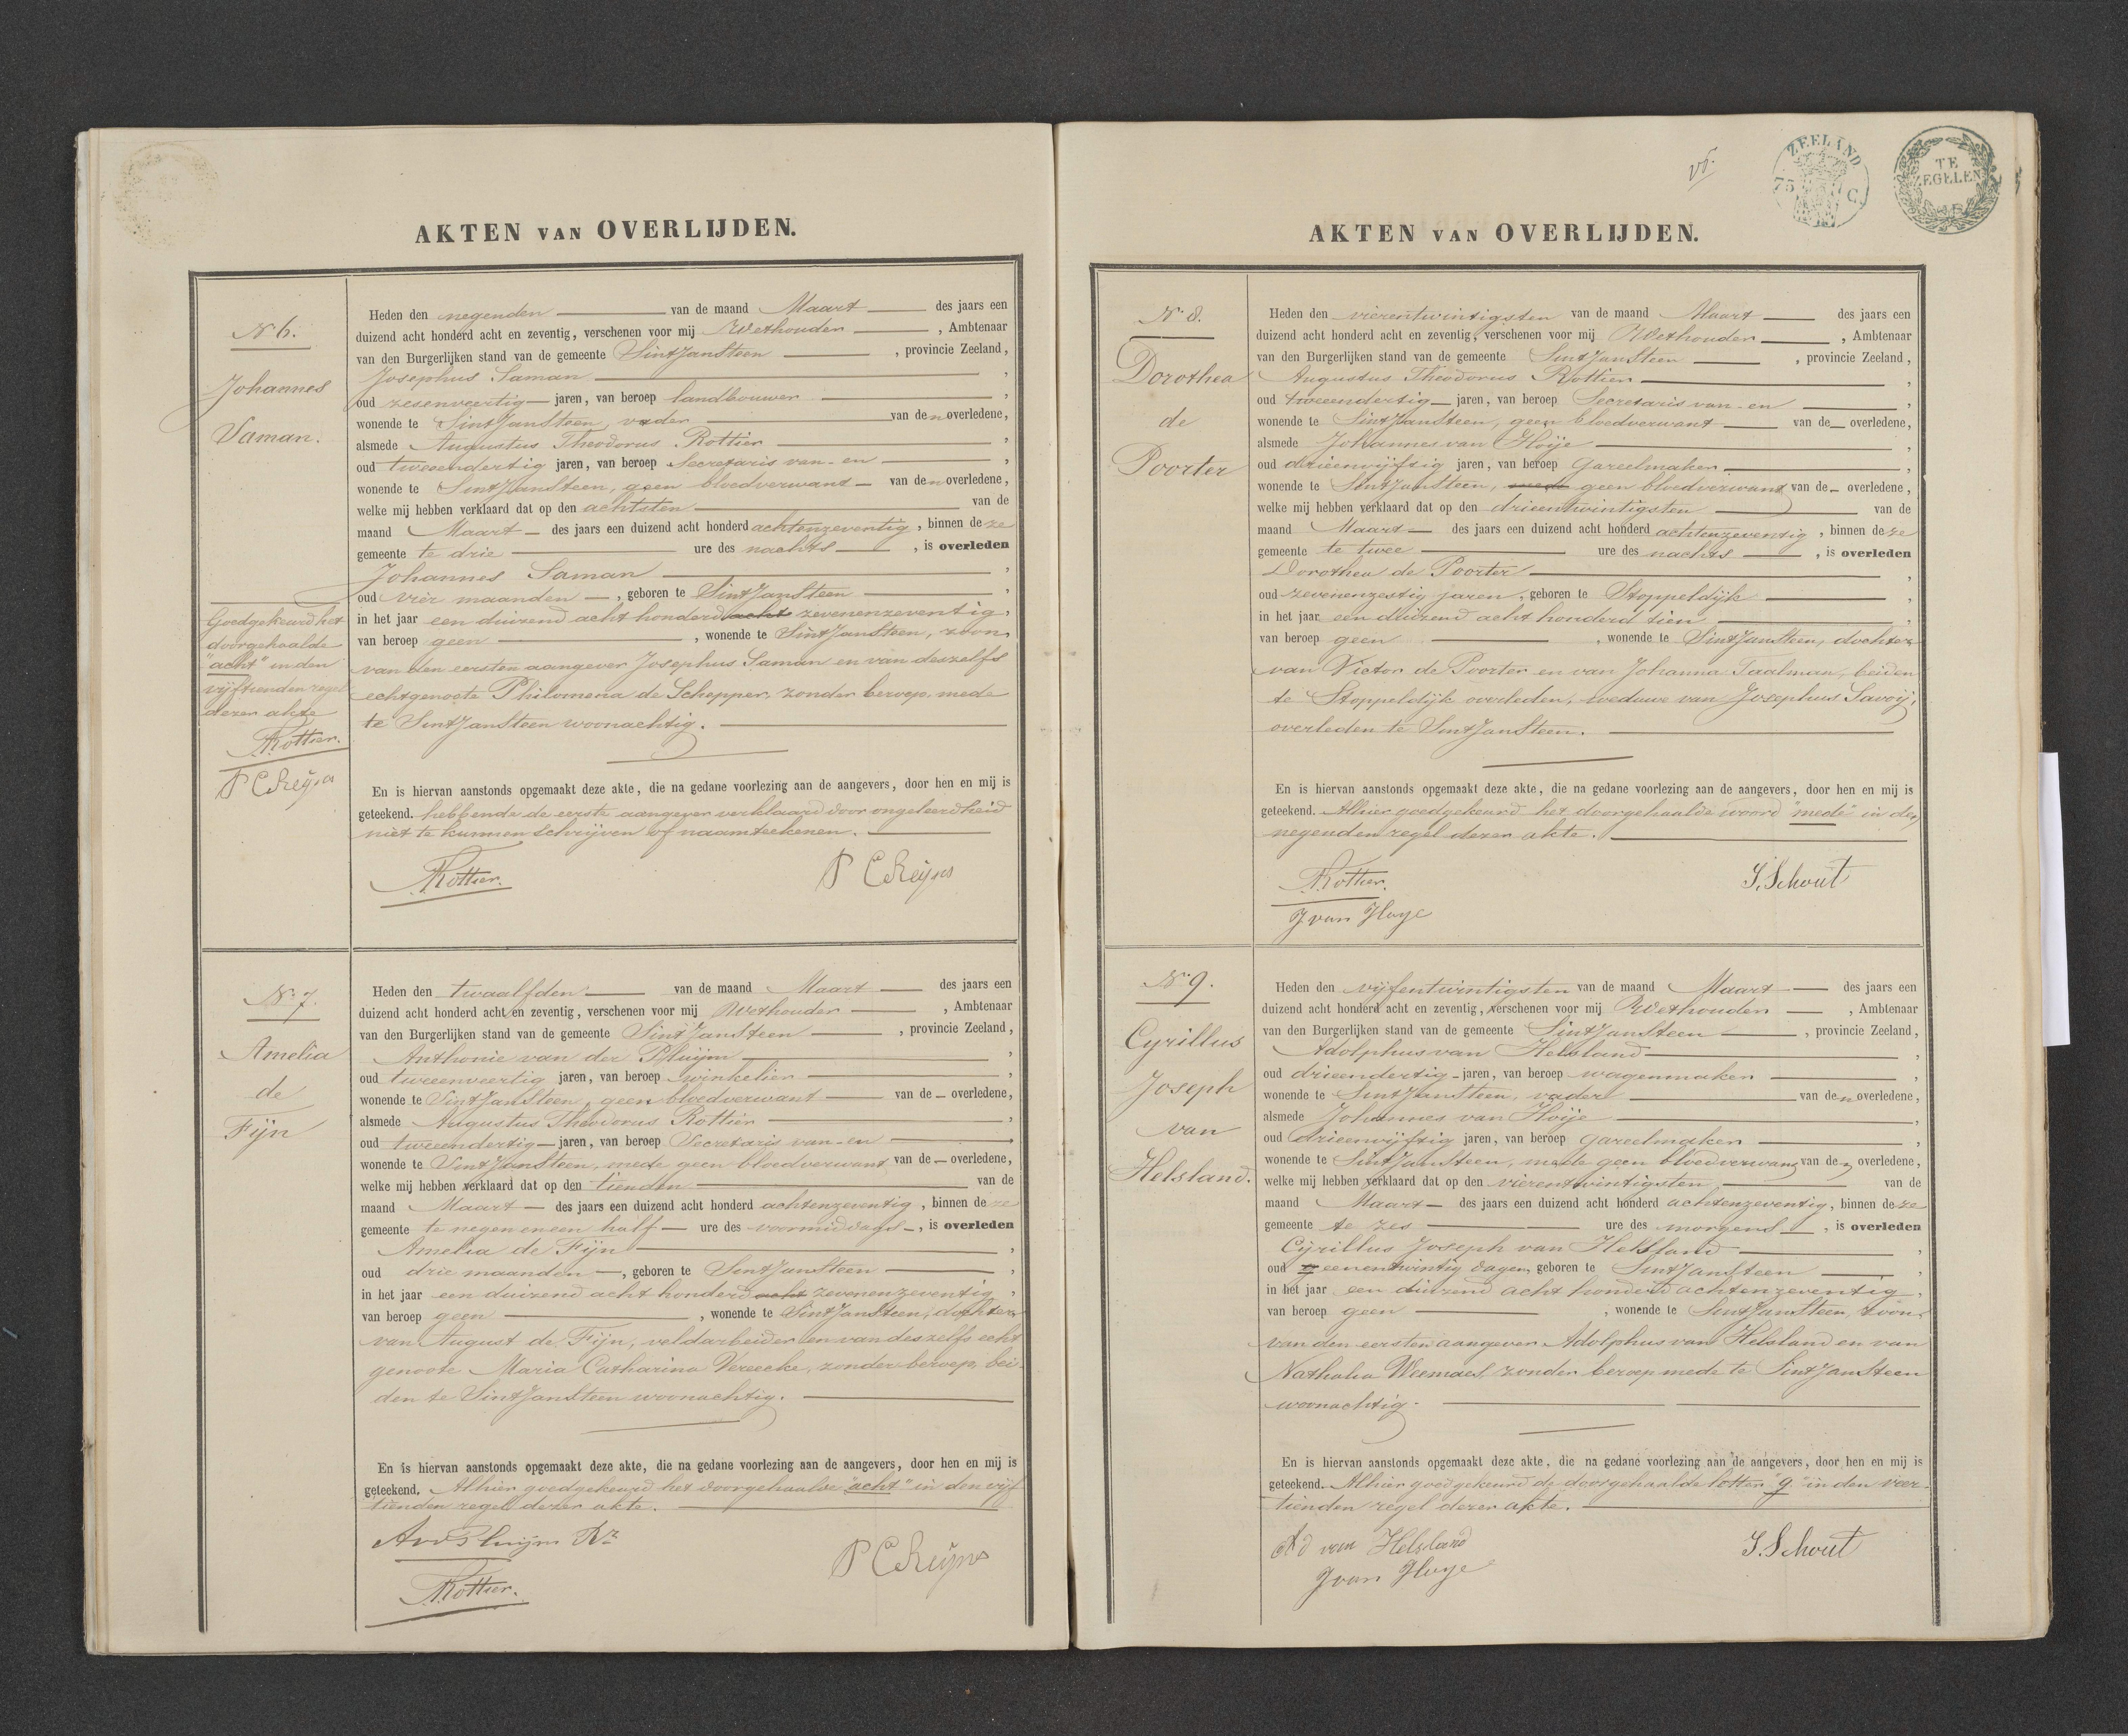 AKTEN VAN OVERLIJDEN.
No 6.
Johannes
Saman.
Goedgekeurd het
doorgehaalde
"acht" in den
vijftienden regel
dezer akte
Rottier.
P C Reijns
Heden den negenden van de maand Maart des jaars een
duizend acht honderd acht en zeventig, verschenen voor mij Wethouder, Ambtenaar
van den Burgerlijken stand van de gemeente Sint Jansteen, provincie Zeeland,
Josephus Saman,
oud zesenveertig jaren, van beroep landbouwer,
wonende te Sint Jansteen, vader van den overledene,
alsmede Augustus Theodorus Rottier,
oud tweeendertig jaren, van beroep Secretaris van- en,
wonende te Sint Jansteen, geen bloedverwant van den overledene,
welke mij hebben verklaard dat op den achtsten van de
maand Maart des jaars een duizend acht honderd achtenzeventig, binnen deze
gemeente te drie ure des nachts, is overleden
Johannes Saman,
oud vier maanden, geboren te Sint Jansteen,
in het jaar een duizend acht honderd acht zevenenzeventig,
van beroep geen, wonende te Sint Jansteen, zoon
van den eersten aangever Josephus Saman en van deszelfs
echtgenoote Philomena de Schepper, zonder beroep, mede
te Sint Jansteen woonachtig.
En is hiervan aanstonds opgemaakt deze akte, die na gedane voorlezing aan de aangevers, door hen en mij is
geteekend. hebbende de eerste aangever verklaard door ongeleerdheid
niet te kunnen schrijven of naamteekenen.
Rottier. P C Reijns
No 7.
Amelia
de
Fijn
Heden den twaalfden van de maand Maart des jaars een
duizend acht honderd acht en zeventig, verschenen voor mij Wethouder, Ambtenaar
van den Burgerlijken stand van de gemeente Sint Jansteen, provincie Zeeland,
Anthonie van der Pluijm,
oud tweeenveertig jaren, van beroep winkelier,
wonende te Sint Jansteen, geen bloedverwant van de overledene,
alsmede Augustus Theodorus Rottier,
oud tweeendertig jaren, van beroep Secretaris van-en,
wonende te Sint Jansteen, mede geen bloedverwant van de overledene,
welke mij hebben verklaard dat op den tienden van de
maand Maart des jaars een duizend acht honderd achtenzeventig, binnen deze
gemeente te negen en een half ure des voormiddags, is overleden
Amelia de Fijn,
oud drie maanden, geboren te Sint Jansteen,
in het jaar een duizend acht honderd acht zevenenzeventig,
van beroep geen, wonende te Sint Jansteen, dochter
van August de Fijn, veldarbeider en van deszelfs echt
genoote Maria Catharina Vereecke, zonder beroep, bei-
den te Sint Jansteen woonachtig.
En is hiervan aanstonds opgemaakt deze akte, die na gedane voorlezing aan de aangevers, door hen en mij is
geteekend. Alhier goedgekeurd het doorgehaalde "acht" in den vijf
tienden regel dezer akte.
AvdPluijm Rz
P C Reijns
Rottier.
v5.
ZEELAND
75 C.
TE
ZEGELEN
AKTEN VAN OVERLIJDEN.
No 8.
Dorothea
de
Poorter
Heden den vierentwintigsten van de maand Maart des jaars een
duizend acht honderd acht en zeventig, verschenen voor mij Wethouder, Ambtenaar
van den Burgerlijken stand van de gemeente Sint Jansteen, provincie Zeeland,
Augustus Theodorus Rottier,
oud tweeendertig jaren, van beroep Secretaris van-en,
wonende te Sint Jansteen, geen bloedverwant van de overledene,
alsmede Johannes van Hoije,
oud drieenvijftig jaren, van beroep gareelmaker,
wonende te Sint Jansteen, mede geen bloedverwant van de overledene,
welke mij hebben verklaard dat op den drieentwintigsten van de
maand Maart des jaars een duizend acht honderd achtenzeventig, binnen deze
gemeente te twee ure des nachts, is overleden
Dorothea de Poorter,
oud zevenenzestig jaren, geboren te Stoppeldijk,
in het jaar een duizend acht honderd tien,
van beroep geen, wonende te Sint Jansteen, dochter
van Victor de Poorter en van Johanna Taalman, beiden
te Stoppeldijk overleden, weduwe van Josephus Savoij,
overleden te Sint Jansteen.
En is hiervan aanstonds opgemaakt deze akte, die na gedane voorlezing aan de aangevers, door hen en mij is
geteekend. Alhier goedgekeurd het doorgehaalde woord "mede" in den
negenden regel dezer akte.
Rottier. J. Schout
J van Hoye
No 9.
Cyrillus
Joseph
van
Helsland.
Heden den vijfentwintigsten van de maand Maart des jaars een
duizend acht honderd acht en zeventig, verschenen voor mij Wethouder, Ambtenaar
van den Burgerlijken stand van de gemeente Sint Jansteen, provincie Zeeland,
Adolphus van Helsland,
oud drieendertig jaren, van beroep wagenmaker,
wonende te Sint Jansteen, vader van den overledene,
alsmede Johannes van Hoije,
oud drieenvijftig jaren, van beroep gareelmaker,
wonende te Sint Jansteen, mede geen bloedverwant van den overledene,
welke mij hebben verklaard dat op den vierentwintigsten van de
maand Maart des jaars een duizend acht honderd achtenzeventig, binnen deze
gemeente te zes ure des morgens, is overleden
Cijrillus Joseph van Helsland,
oud g eenentwintig dagen, geboren te Sint Jansteen,
in het jaar een duizend acht honderd achtenzeventig,
van beroep geen, wonende te Sint Jansteen, zoon
van den eersten aangever Adolphus van Helsland en van
Nathalia Weemaes, zonder beroep mede te Sint Jansteen
woonachtig.
En is hiervan aanstonds opgemaakt deze akte, die na gedane voorlezing aan de aangevers, door hen en mij is
geteekend. Alhier goedgekeurd de doorgehaalde letter "g" in den veer-
tienden regel dezer akte.
Ad van Helsland J. Schout
J van Hoye